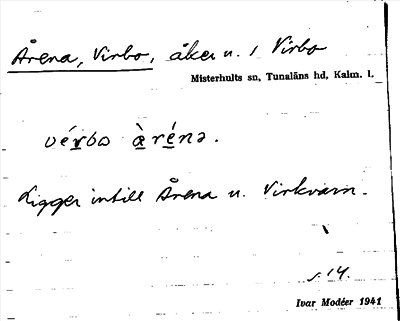 Årena, Virbo, åker u. / Virbo
Misterhults sn, Tunaläns hd, Kalm. l.
vérbo àrénə.
Ligger intill Årena u. Virkvarn.
s. 14.
Ivar Modéer 1941